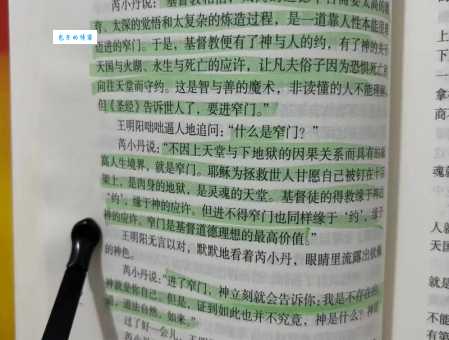 芮小丹说：
育、太深的觉悟和太复杂的炼造过程，是一道靠人性本能很
迈进的窄门。于是，基督教便有了神与人的约，有了神的关于
天国与火湖、永生与死亡的应许，让凡夫俗子因为恐惧死亡
向往天堂而守约。这是智与善的魔术，非读懂的人不能
但《圣经》告诉世人了，要进窄门。”
王明阳咄咄逼人地追问：“什么是窄门？”
芮小丹说：“不因上天堂与下地狱的因果关系而具有的
高人生境界，就是窄门。耶稣为拯救世人甘愿自己被钉在十
架上，是肉身的地狱，是灵魂的天堂。基督徒的得救缘于
‘约’，缘于神的应许。但进不得窄门也同样缘于‘约’，缘于
神的应许。窄门是基督道德理想的最高价值。”
王明阳无言以对，默默地看着芮小丹，眼睛里流露出
的神色。
芮小丹说：“进了窄门，神立刻就会告诉你：我是不存在的
神就是你自己。但是，证到如此也并不究竟，神是什么？
即道，道法自然，如来。”
过了好一会儿，王明阳
芮小丹
上
下
一
拿
商不
魂就
人就
天国
就是
不能
有第